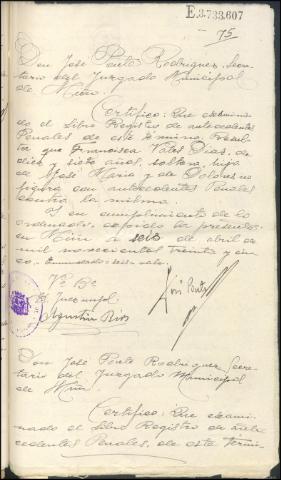 E.3.733.607
75
Don José Pento Rodriguez, Secre-
tario del Juzgado Municipal
de
Certifico: Que examina-
do el Libro Registro de antecedentes
Penales de este termino, resul-
ta que Francisca Vales Dias, de
diez y siete años, soltera, hija
de José Maria y de Dolores no
figura con antecedentes Penales
contra la misma.
Y en cumplimiento de lo
ordenado, expido la presente
en a seis de abril de
mil novecientos treinta y cin-
co. Enmendado: seis: vale.
Vº Bº
El Juez mpal
Agustin Rios
José Pento
Don José Pento Rodriguez, Secre-
tario del Juzgado Municipal
de
Certifico: Que exami-
nado el Libro Registro de ante
cedentes Penales, de este termi-